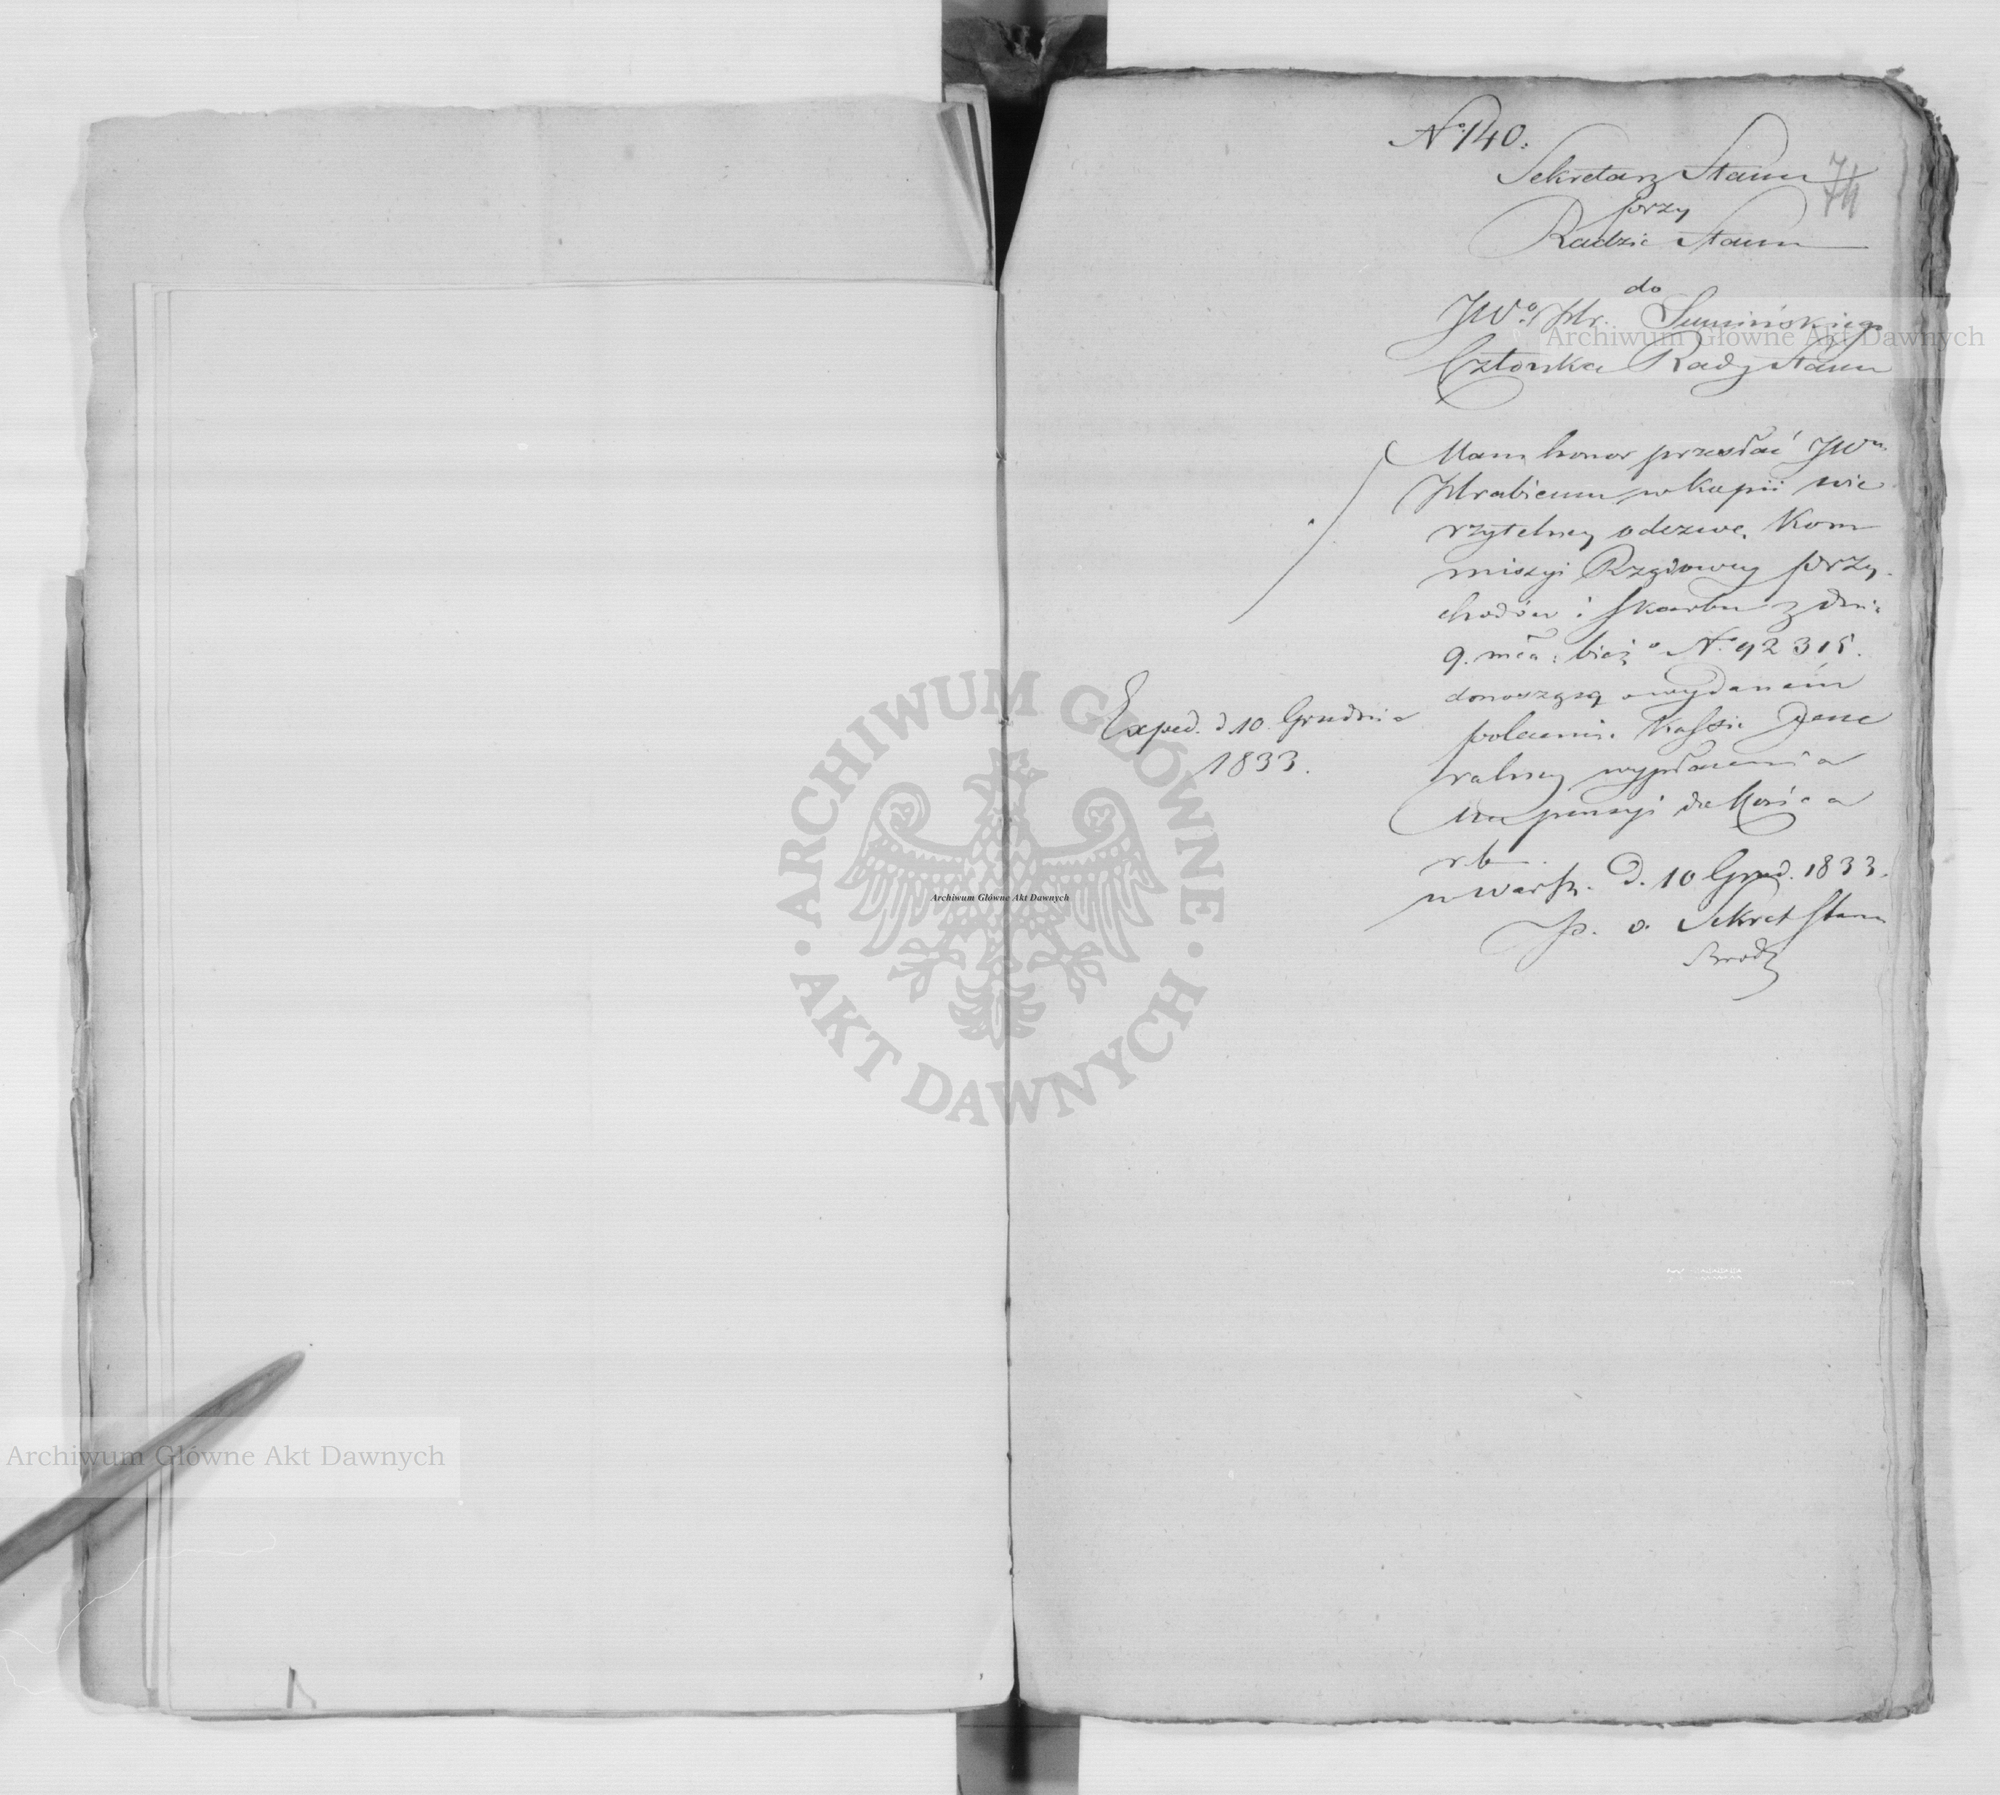 No 140.
74
Sekretarz Stanu
przy
Radzie Stanu
do
JWo Hr. Sumińskiego
Członka Rady Stanu
Mam honor przesłać JWu
Hrabiemu w kopii wie
rzytelney odezwę Kom
missyi Rządowey Przy
chodów i Skarbu z dnia
9. mca: bieżo No 92315.
donoszącą o wydaném
poleceniu Kassie Jene
ralney wypłacenia
Mu pensyi do końca
r b.
w Warsz. D. 10 Grud. 1833.
p. o. Sekret Stanu
Exped. d 10. Grudnia
1833.
Archiwum Główne Akt Dawnych
ARCHIWUM GŁÓWNE
AKT DAWNYCH
Archiwum Główne Akt Dawnych
Archiwum Główne Akt Dawnych